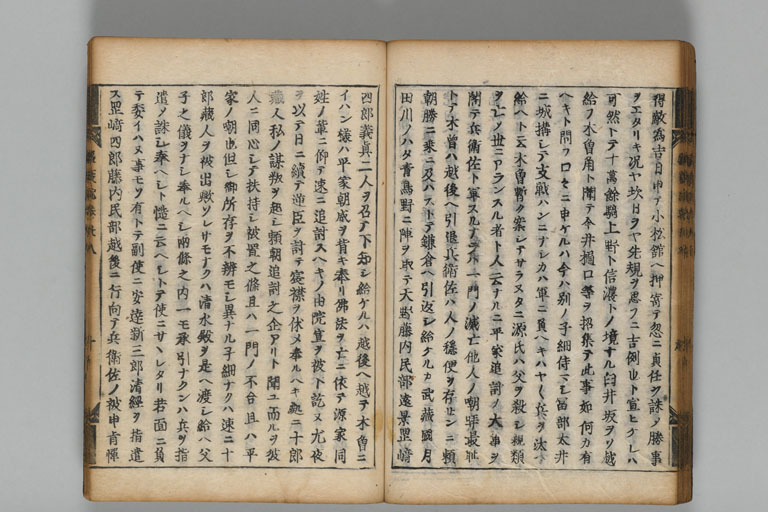 得敵為吉日申テ小松館ヘ押寄テ忽ニ貞任ヲ誅ノ勝事
ヲエタリキ況ヤ坎日ヲヤ先規ヲ思フニ吉例也ト宣ヒケレハ
可然トテ十萬餘騎上野ト信濃トノ境ナル臼井坂ヲソ越
給フ木曽角ト聞テ今井樋口等ヲ招集テ此事如何カ有
ヘキト問フ口々ニ申ケルハ今ハ別ノ子細侍マシ富部太井
ニ城搆シテ支戦ハンニナシカハ軍ニ負ヘキハヤく兵ヲ汰
給ヘト云木曽暫ク案シテサラヌタニ源氏ハ父ヲ殺シ親類
ヲ ノ世ニアランスル者ト人云ナルニ平家追討ノ大事ヲ
閣テ兵衛佐ト軍スルナラハ一門ノ滅亡他人ノ嘲哢最恥
トテ木曽ハ越後ヘ引退兵衛佐ハ人ノ穏便ヲ存センニ頼
朝勝ニ乗ニ及ハストテ鎌倉ヘ引返シ給ケルカ武蔵國月
田川ノハタ青鳥野ニ陣ヲ取テ天野藤内民部遠景罡﨑
四郎義真二人ヲ召テ下知シ給ケルハ越後ヘ越テ木曽ニ
イハン様ハ平家朝威ヲ背キ奉リ佛法ヲ亡ニ依テ源家同
姓ノ輩ニ仰テ速ニ追討スヘキノ由院宣ヲ被下訖ヌ尤夜
ヲ以テ日ニ續テ逆臣ヲ討テ宸襟ヲ休メ奉ルヘキ処ニ十郎
蔵人私ノ謀叛ヲ起シ頼朝追討之企アリト聞ユ而ルヲ彼
人ニ同心シテ扶持シ被置之條且ハ一門ノ不合且ハ平
家ノ嘲也但シ御所存ヲ不辨モシ異ナル子細ナクハ速ニ十
郎蔵人ヲ被出歟ソレサモナクハ清水殿ヲ是ヘ渡シ給ヘ父
子之儀ヲナシ奉ルヘシ両條之内一モ承引ナクンハ兵ヲ指
遣ノ誅シ奉ヘシト慥ニ云ヘシトテ使ニサヽレタリ若面ニ負
テ委イハヌ事モソ有トテ副使ニ安達新三郎清経ヲ指遣
ス罡﨑四郎藤内民部越後ニ行向テ兵衛佐ノ被申肯懌